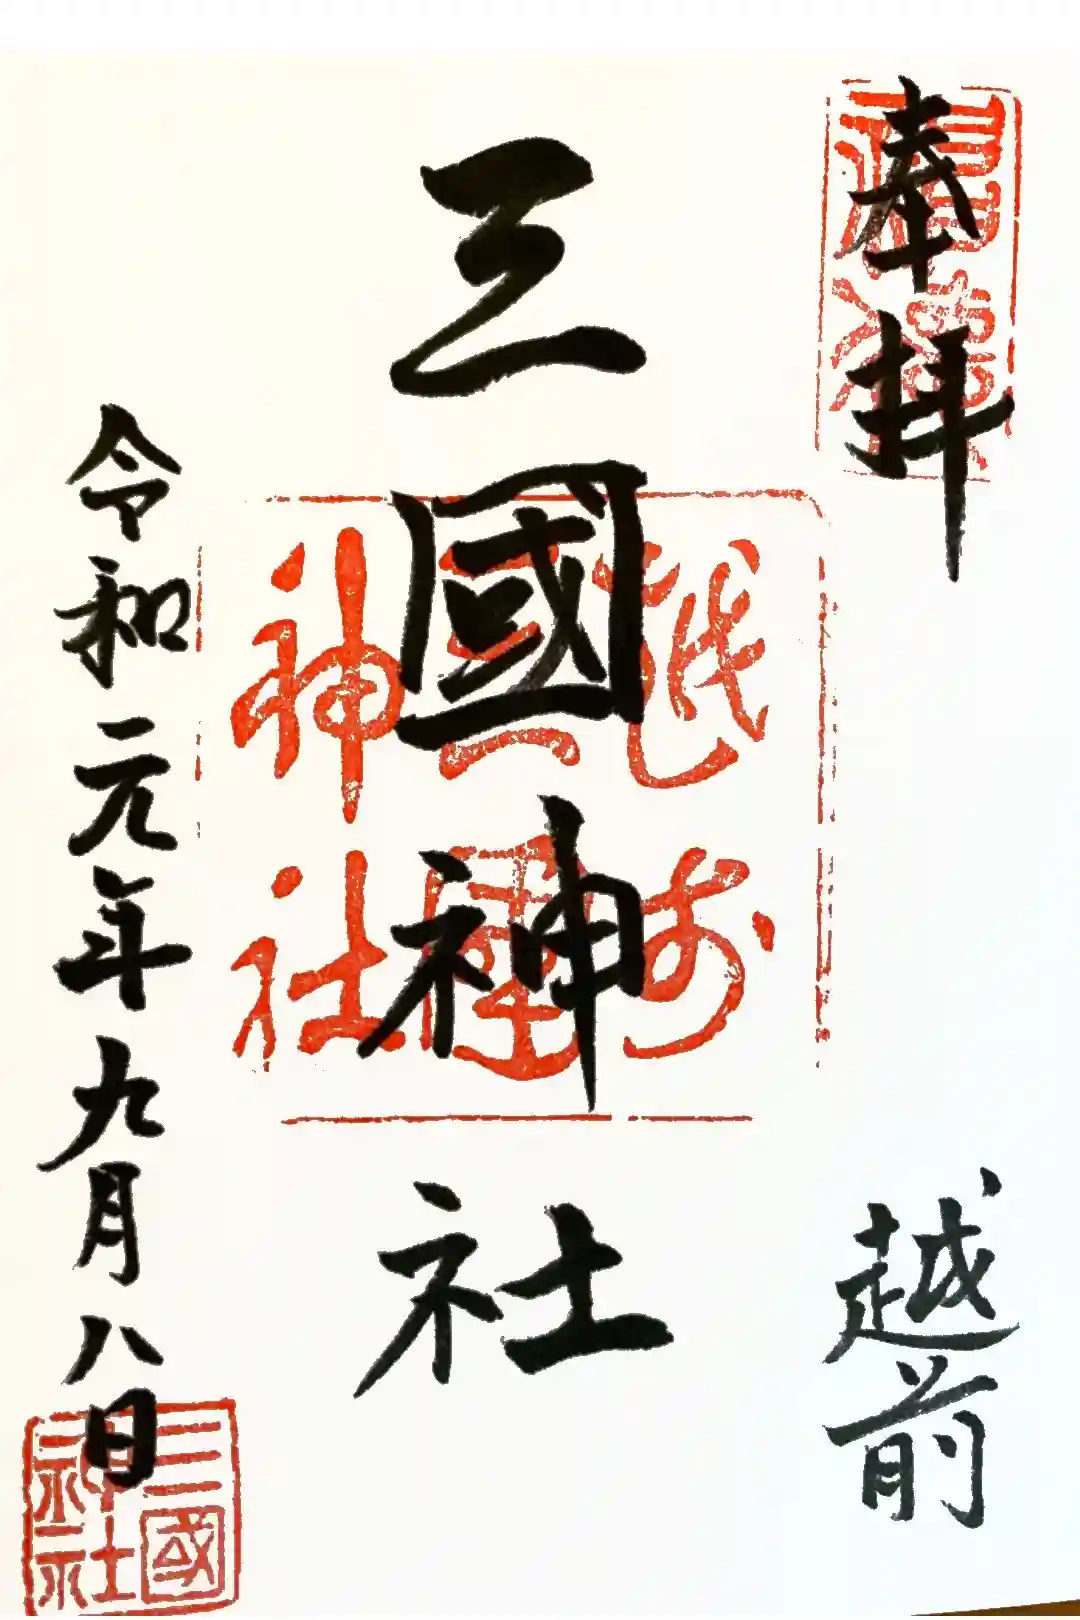 奉拝
越前
三國神社
越州
三國
神社
令和元年九月八日
三國
神社